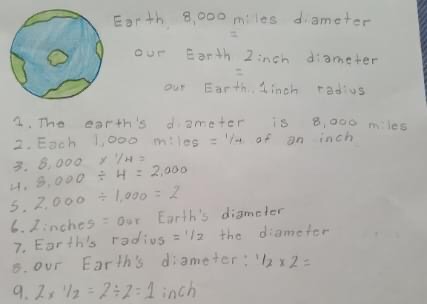 Earth 8,000 miles diameter
=
our Earth 2 inch diameter
=
our Earth 1 inch radius
1. The earth's diameter is 8,000 miles
2. Each 1,000 miles = 1/4 of an inch
3. 8,000 x 1/4 =
4. 8,000 ÷ 4 = 2,000
5. 2,000 ÷ 1,000 = 2
6. 2 inches = our Earth's diameter
7. Earth's radius = 1/2 the diameter
8. our Earth's diameter: 1/2 x 2 =
9. 2 x 1/2 = 2 ÷ 2 = 1 inch